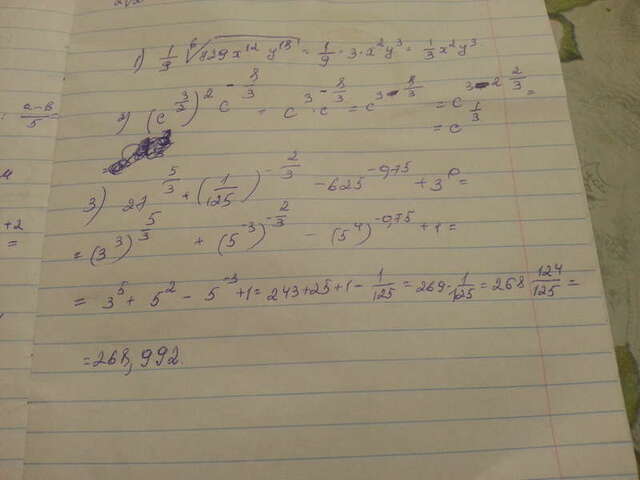 a-b/5 =
+2
=
1) 1/9 ⁶√729x¹² y¹⁸ = 1/9 · 3 · x² y³ = 1/3 x² y³
2) (c^(3/2))² c^(-8/3) = c³ · c^(-8/3) = c^(3-8/3) = c^(3-2 2/3) =
= c^(1/3)
3) 27^(5/3) + (1/125)^(-2/3) - 625^(-0,75) + 3⁰ =
= (3³)^(5/3) + (5⁻³)^(-2/3) - (5⁴)^(-0,75) + 1 =
= 3⁵ + 5² - 5⁻³ + 1 = 243+25+1 - 1/125 = 269 - 1/125 = 268 124/125 =
= 268,992.